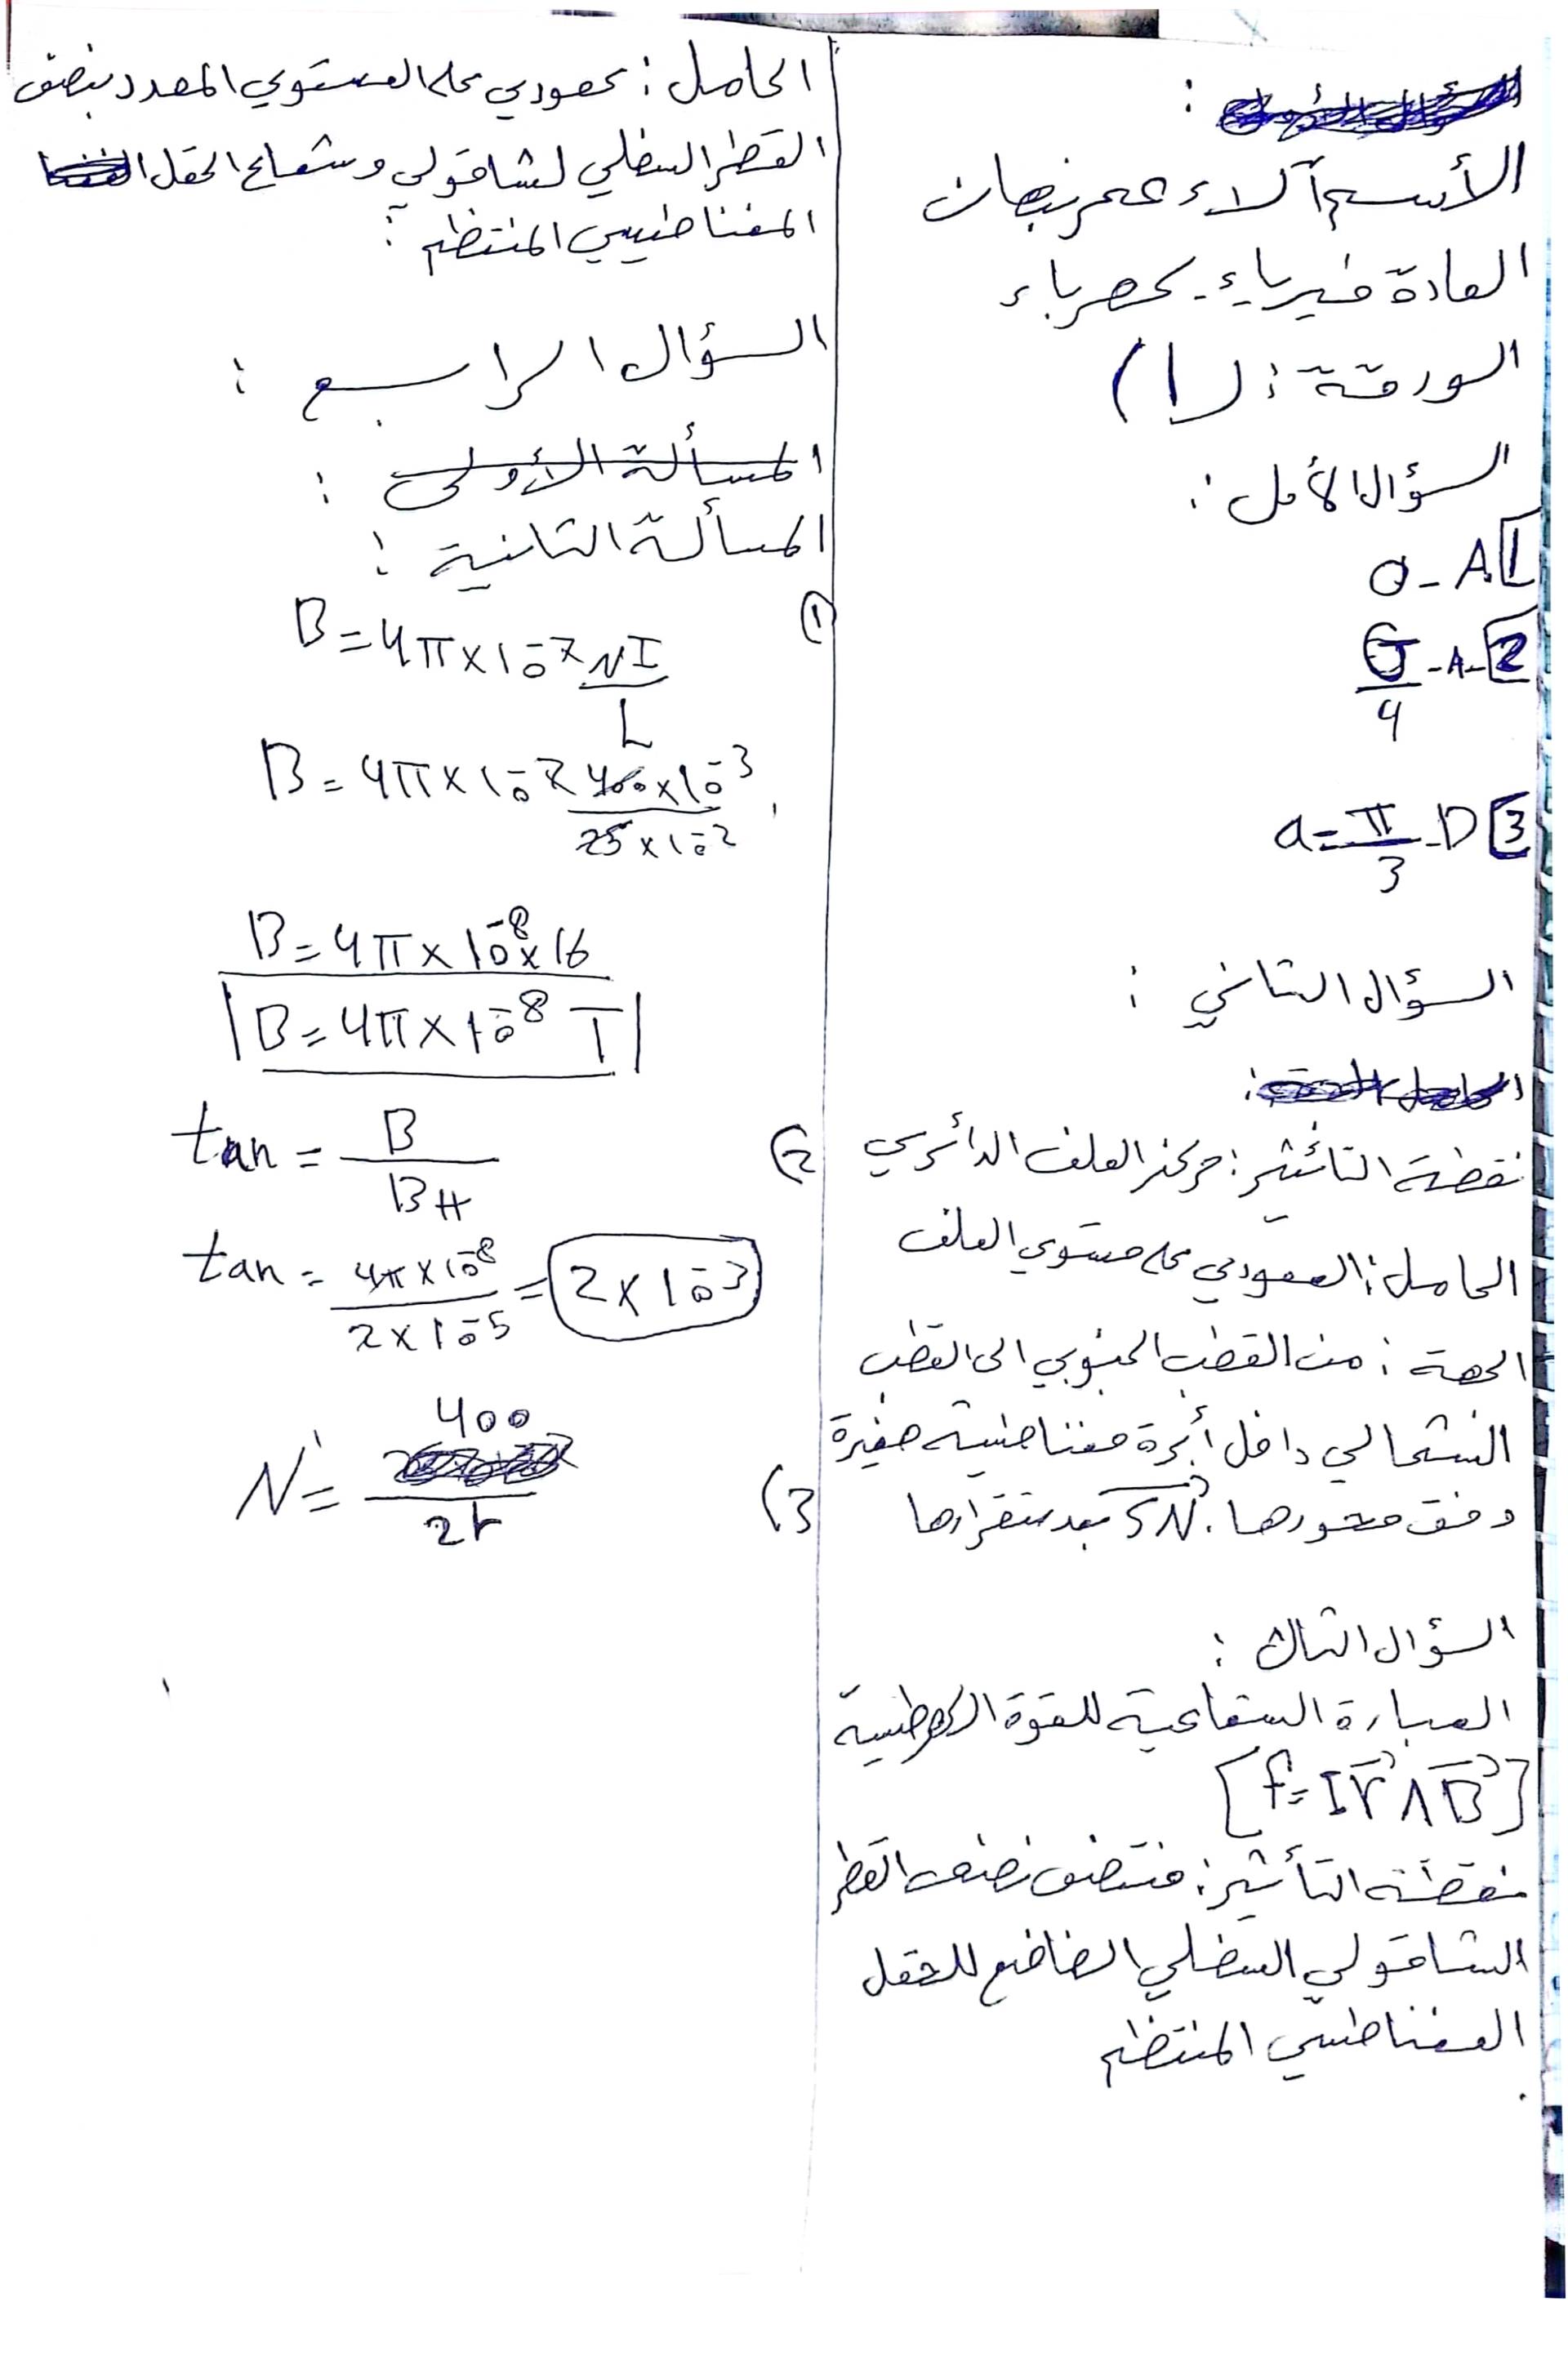 الأسم آلاء عمر نبهان
المادة فيزياء - كهرباء
الورقة : (1)
السؤال الأول :
1 A - 0
2 - A -
4
3 D - a = π/3
السؤال الثاني :
نقطة التأثير : مركز الملف الدائري
الحامل : العمودي على مستوي الملف
الجهة : من القطب الجنوبي الى القطب
الشمالي داخل أبرة مغناطيسية صغيرة
وفق محورها . SN بعد ستقرارها
السؤال الثالث :
العبارة الشعاعية للقوة الكهرطيسية
[f = I r Λ B]
نقطة التأثير : منتصف نصف القطر
الشاقولي السفلي الخاضع للحقل
المغناطسي المنتظم
الحامل : عمودي على المستوي المحدد بنصف
القطر السفلي لشاقولي وشعاع الحقل
المغناطيسي المنتظم :
السؤال الرابع :
المسألة الأولى :
المسألة الثانية :
1) B = 4π × 10⁻⁷ NI/L
B = 4π × 10⁻⁷ 400 × 10⁻³ / 25 × 10⁻²
B = 4π × 10⁻⁸ × 16
B = 4π × 10⁻⁸ T
2) tan = B/BH
tan = 4π × 10⁻⁸ / 2 × 10⁻⁵ = 2 × 10⁻³
3) N' = 400 / 2r